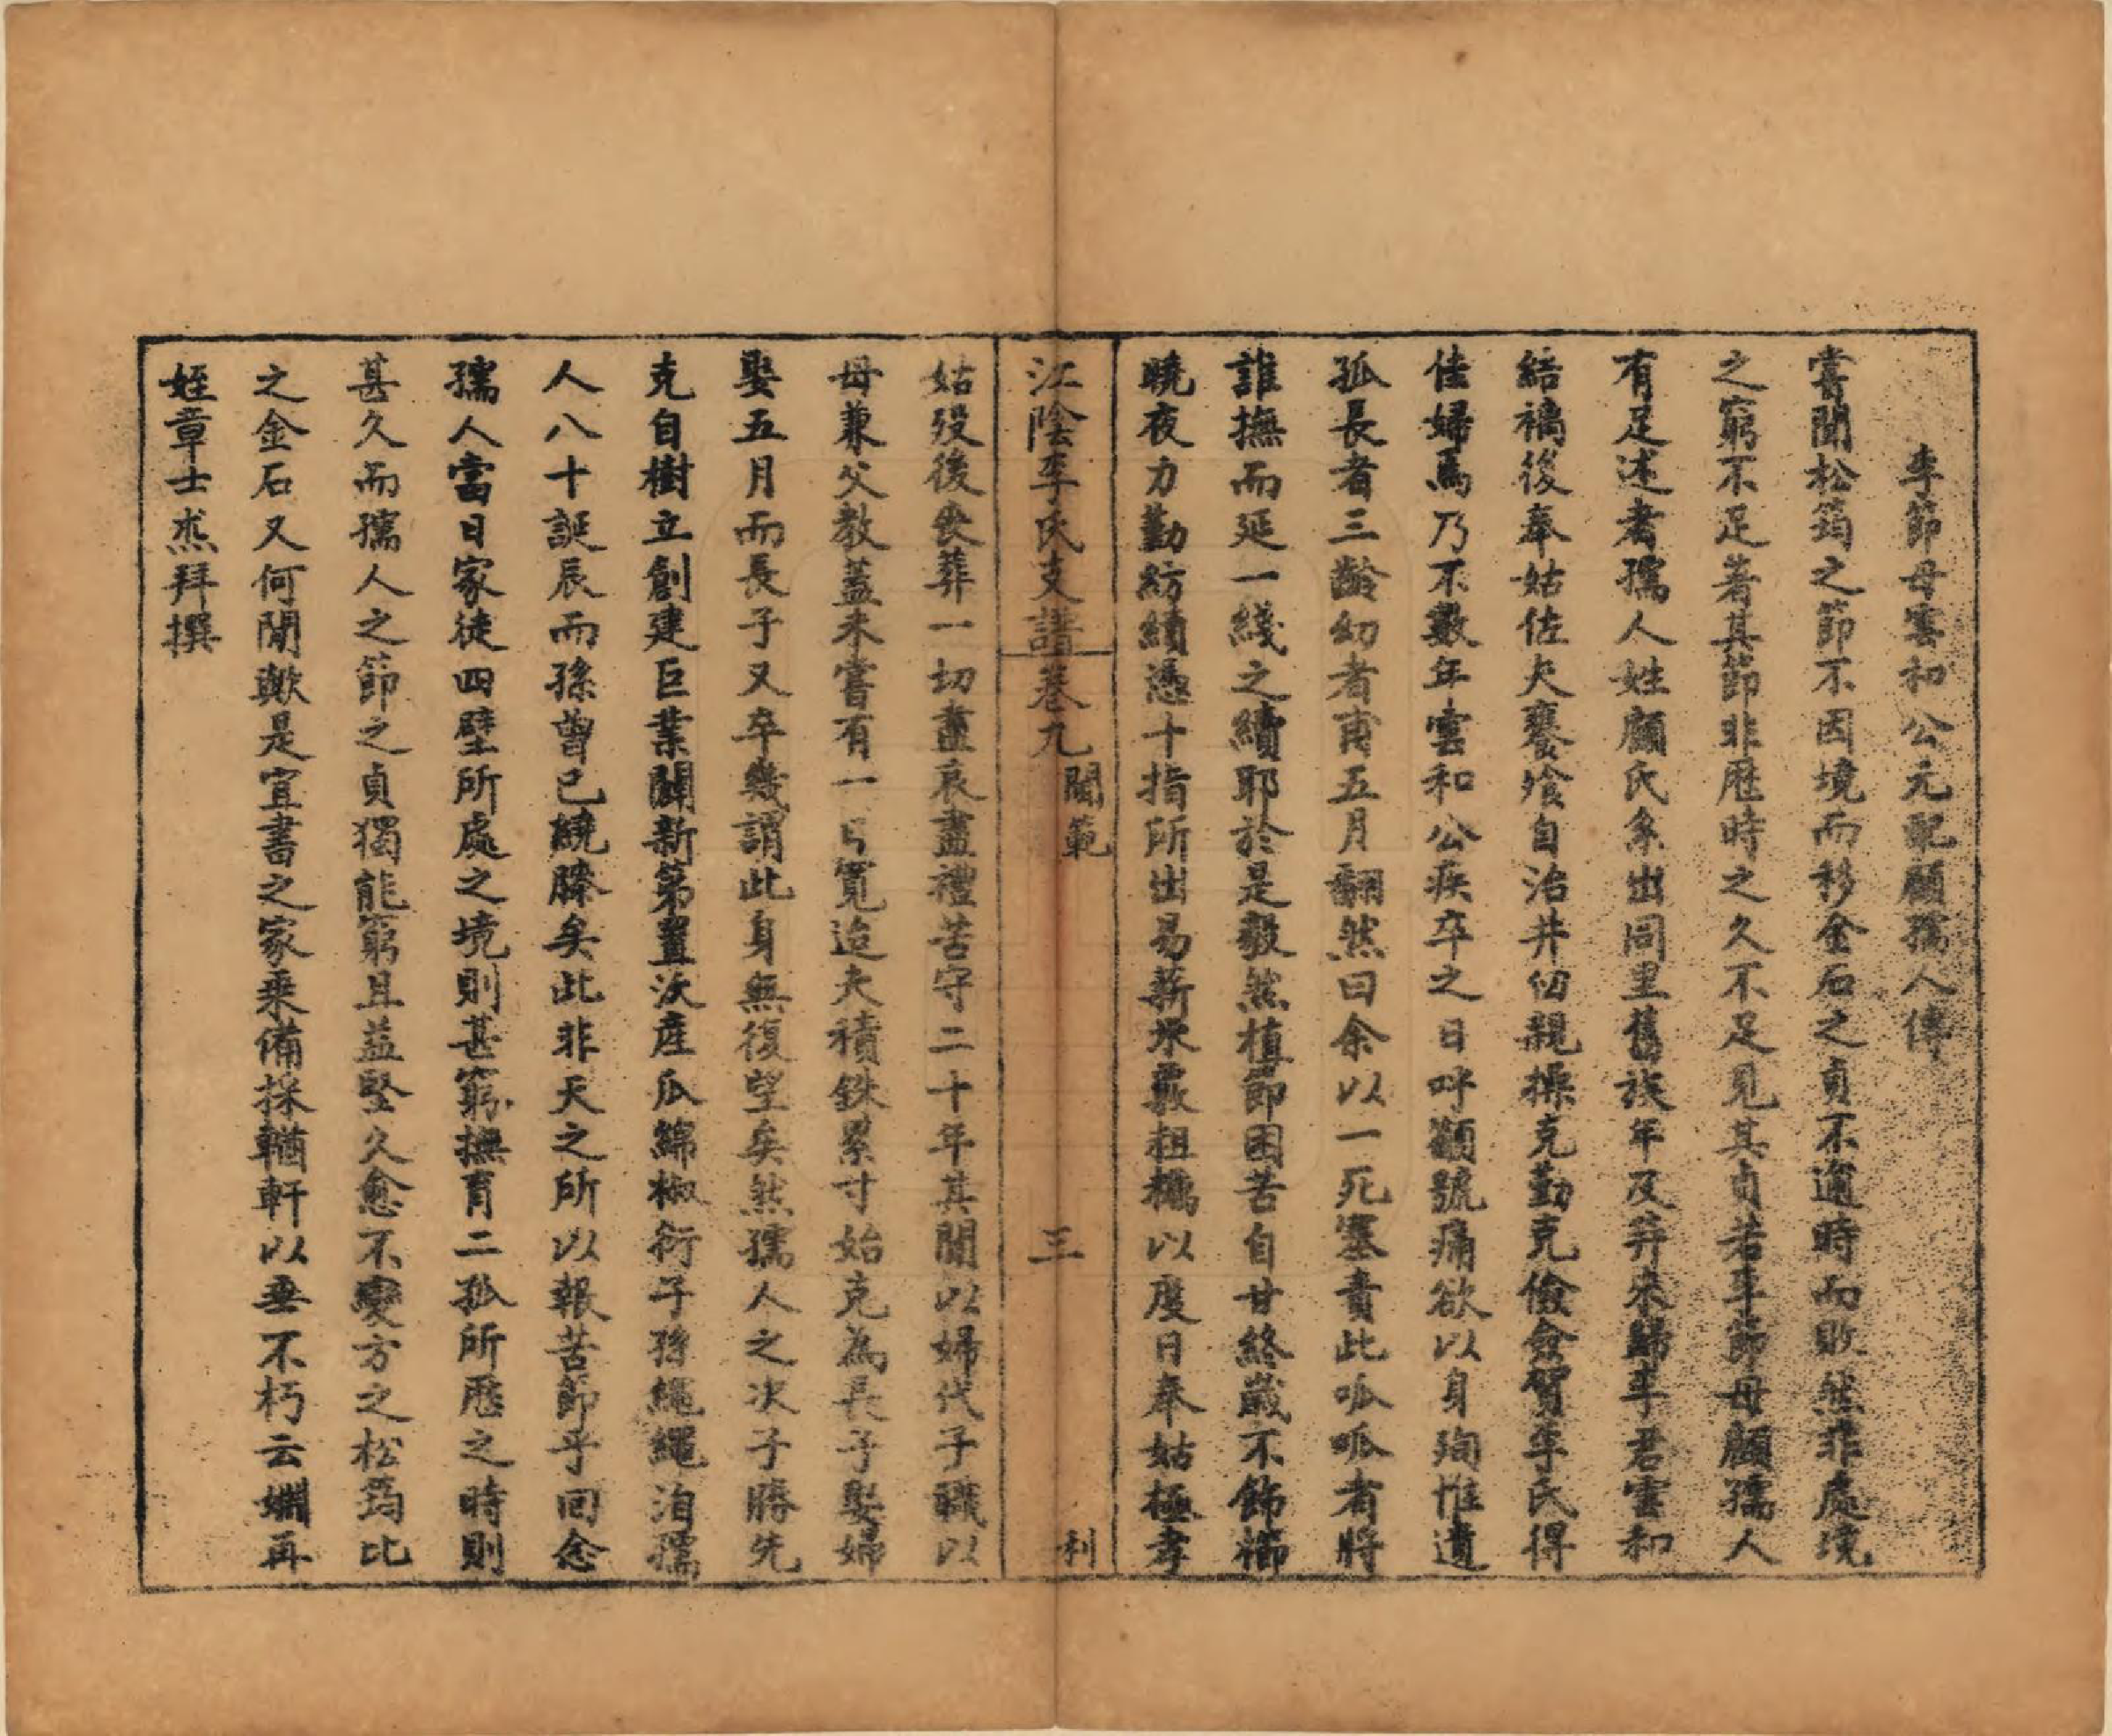 李節母雲和公元配顧孺人傳
嘗聞松筠之節不因境而移金石之貞不適時而敗然非處境
之窮不足著其節非歷時之久不足見其貞若李節母顧孺人
有足述者孺人姓顧氏系出同里舊族年及笄來歸李君雲和
結褵後奉姑佐夫饔飧自治井臼親操克勤克儉僉賀李氏得
佳婦焉乃不數年雲和公疾卒之日呼顲號痛欲以身殉惟遺
孤長者三齡幼者甫五月翻然曰余以一死塞責此呱呱者將
誰撫而延一綫之續耶於是毅然植節困苦自甘終歲不飾櫛
曉夜力勤紡績憑十指所出易薪水藪粗櫔以度日奉姑極孝
江陰李氏支譜卷九 閫範 三 利
姑歿後喪葬一切盡哀盡禮苦守二十年其間以婦代子職以
母兼父教蓋未嘗有一日寬迨夫積銖累寸始克為長子娶婦
娶五月而長子又卒幾謂此身無復望矣然孺人之次子勝先
克自樹立創建巨業闢新第置沃産瓜綿椒衍子孫繩繩洎孺
人八十誕辰而孫曾已繞膝矣此非天之所以報苦節乎回念
孺人當日家徒四壁所處之境則甚窮撫育二孤所歷之時則
甚久而孺人之節之貞獨能窮且益堅久愈不變方之松筠比
之金石又何閒歟是宜書之家乘備採輶軒以垂不朽云姻再
姪章士烝拜撰